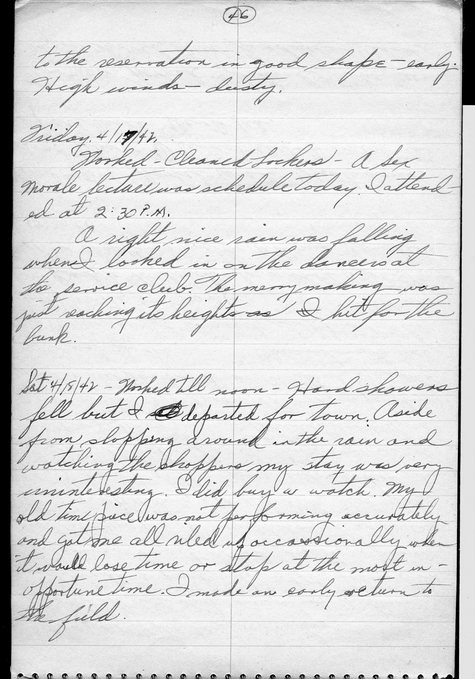 46
to the reservation in good shape - early.
High winds - dusty.
Friday. 4/17/42.
Worked - Cleaned Lockers - A Sex
Morale lecture was schedule today. I attend-
ed at 2:30 P.M.
A right nice rain was falling
when I looked in on the dancers at
the service club. The merrymaking was
just reaching its heights as I hit for the
bunk.
Sat 4/18/42 - Worked till noon - Hard showers
fell but I departed for town. Aside
from slopping around in the rain and
watching the shoppers my stay was very
uninteresting. I did buy a watch. My
old time piece was not performing accurately
and got me all riled up occassionally when
it would lose time or stop at the most in-
opportune time. I made an early return to
the field.